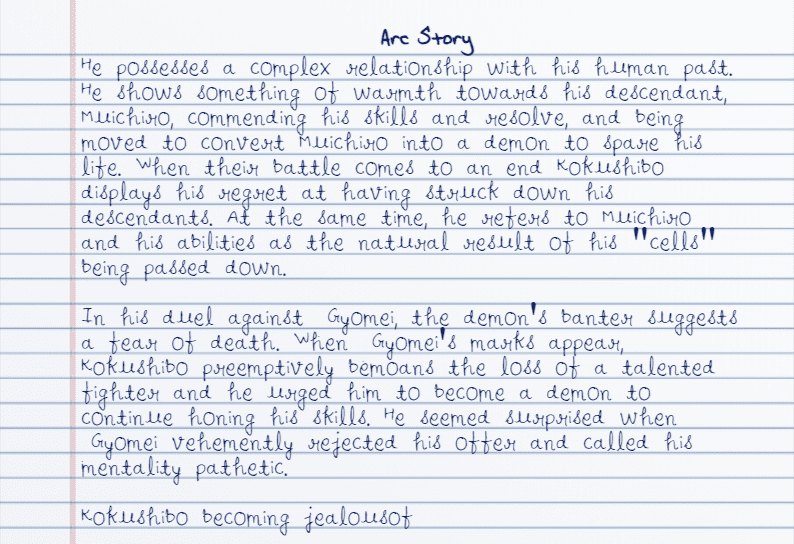 Arc Story
He possesses a complex relationship with his human past.
He shows something of warmth towards his descendant,
Muichiro, commending his skills and resolve, and being
moved to convert Muichiro into a demon to spare his
life. When their battle comes to an end Kokushibo
displays his regret at having struck down his
descendants. At the same time, he refers to Muichiro
and his abilities as the natural result of his "cells"
being passed down.
In his duel against Gyomei, the demon's banter suggests
a fear of death. When Gyomei's marks appear,
Kokushibo preemptively bemoans the loss of a talented
fighter and he urged him to become a demon to
continue honing his skills. He seemed surprised when
Gyomei vehemently rejected his offer and called his
mentality pathetic.
Kokushibo becoming jealousof